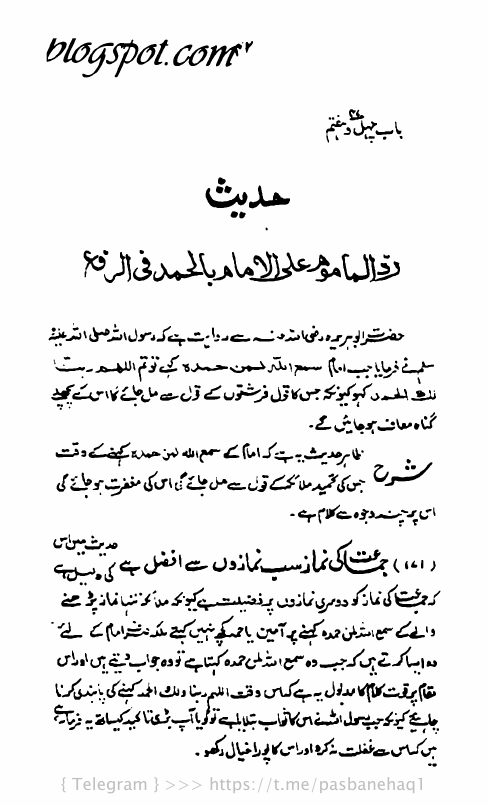 blogspot.com ۴۷
باب چہل و ہفتم
حدیث
ردّ الماموم علی الامام بالحمد فی الرفع
حضرت ابوہریرہ رضی اللہ عنہ سے روایت ہے کہ رسول اللہ صلی اللہ علیہ
سلم نے فرمایا جب امام سمع اللہ لمن حمدہ کہے تو تم اللهم ربنا
لك الحمد کہو کیونکہ جس کا قول فرشتوں کے قول سے مل جائے گا اس کے پچھلے
گناہ معاف ہو جائیں گے۔
شرح ظاہر حدیث یہ ہے کہ امام کے سمع اللہ لمن حمدہ کہنے کے وقت
جس کی تحمید ملائکہ کے قول سے مل جائے گی اس کی مغفرت ہو جائے گی
اس پر چند وجوہ سے کلام ہے۔
(۱۷۱) جماعت کی نماز سب نمازوں سے افضل ہے حدیث میں اس
کی دلیل ہے
کہ جماعت کی نماز کو دوسری نمازوں پر فضیلت ہے کیونکہ ملائکہ تنہا نماز پڑھنے
والے کے سمع اللہ لمن حمدہ کہنے پر آمین یا حمد کچھ نہیں کہتے بلکہ صرف امام کے لئے
وہ ایسا کرتے ہیں کہ جب وہ سمع اللہ لمن حمدہ کہتا ہے تو وہ جواب دیتے ہیں اور اس
مقام پر قوت کلام کا مدلول یہ ہے کہ اس وقت اللہم ربنا ولک الحمد کہنے کی پابندی کرنا
چاہیئے کیونکہ جب رسول اللہ نے اس کا ثواب بتلایا ہے تو گویا آپ بڑی تاکید کے ساتھ یہ فرما رہے
ہیں کہ اس سے غفلت نہ کرو اور اس کا پورا خیال رکھو۔
{ Telegram } >>> https://t.me/pasbanehaq1